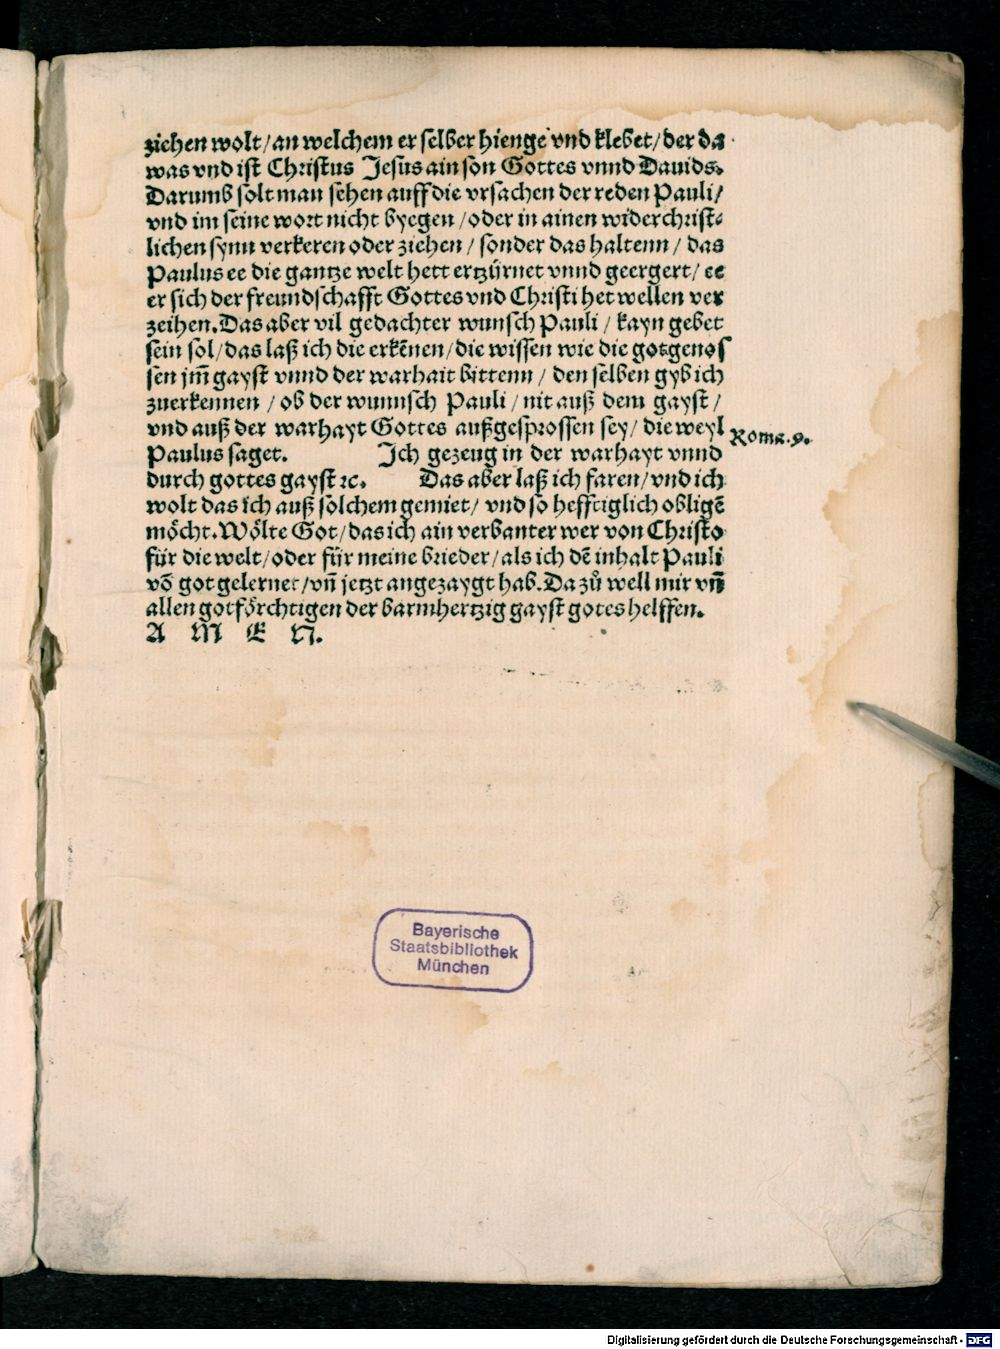 ziehen wolt/an welchem er selber hienge vnd klebet/der da
was vnd ist Christus Jesus ain son Gottes vnnd Dauids.
Darumb solt man sehen auff die vrsachen der reden Pauli/
vnd im seine wort nicht byegen/oder in ainen widerchrist⸗
lichen synn verkeren oder ziehen/sonder das haltenn/das
Paulus ee die gantze welt hett ertzürnet vnnd geergert/ee
er sich der freundschafft Gottes vnd Christi het wellen ver
zeihen.Das aber vil gedachter wunsch Pauli/kayn gebet
sein sol/das laß ich die erkēnen/die wissen wie die gotgenos
sen jm̄ gayst vnnd der warhait bittenn/den selben gyb ich
zuerkennen/ob der wunnsch Pauli/nit auß dem gayst/
vnd auß der warhayt Gottes außgesprossen sey/die weyl
Roma.9.
Paulus saget. Ich gezeug in der warhayt vnnd
durch gottes gayst ꝛc. Das aber laß ich faren/vnd ich
wolt das ich auß solchem gemiet/vnd so hefftiglich obligē
möcht.Wölte Got/das ich ain verbanter wer von Christo
für die welt/oder für meine brieder/als ich dē inhalt Pauli
vō got gelernet/vn̄ jetzt angezaygt hab.Da zů well mir vn̄
allen gotförchtigen der barmhertzig gayst gotes helffen.
A M E N.
Bayerische
Staatsbibliothek
München
Digitalisierung gefördert durch die Deutsche Forschungsgemeinschaft - DFG